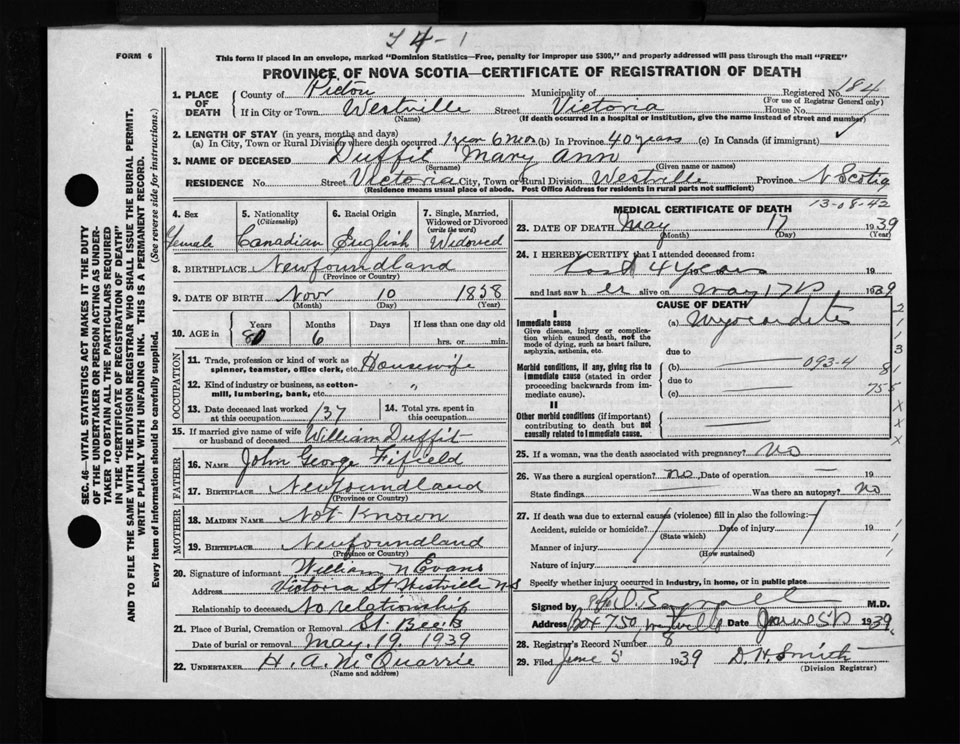 I 4 - 1
FORM 6
This form if placed in an envelope, marked "Dominion Statistics—Free, penalty for improper use $300," and properly addressed will pass through the mail "FREE"
PROVINCE OF NOVA SCOTIA—CERTIFICATE OF REGISTRATION OF DEATH
SEC. 46—VITAL STATISTICS ACT MAKES IT THE DUTY
OF THE UNDERTAKER OR PERSON ACTING AS UNDER-
TAKER TO OBTAIN ALL THE PARTICULARS REQUIRED
IN THE "CERTIFICATE OF REGISTRATION OF DEATH"
AND TO FILE THE SAME WITH THE DIVISION REGISTRAR WHO SHALL ISSUE THE BURIAL PERMIT.
WRITE PLAINLY WITH UNFADING INK. THIS IS A PERMANENT RECORD.
Every item of information should be carefully supplied. (See reverse side for instructions.)
1. PLACE OF DEATH County of Pictou Municipality of Registered No. 184
(For use of Registrar General only)
If in City or Town Westville Street Victoria House No.
(Name) (If death occurred in a hospital or institution, give the name instead of street and number)
2. LENGTH OF STAY (in years, months and days)
(a) In City, Town or Rural Division where death occurred 1 year 6 mos (b) In Province 40 years (c) In Canada (if immigrant)
3. NAME OF DECEASED Duffit Mary Ann
(Surname) (Given name or names)
RESIDENCE No. Street Victoria City, Town or Rural Division Westville Province N Scotia
(Residence means usual place of abode. Post Office Address for residents in rural parts not sufficient)
4. Sex Female
5. Nationality (Citizenship) Canadian
6. Racial Origin English
7. Single, Married, Widowed or Divorced (write the word) Widowed
8. BIRTHPLACE Newfoundland
(Province or Country)
9. DATE OF BIRTH Novr 10 1858
(Month) (Day) (Year)
10. AGE in Years 80 Months 6 Days If less than one day old hrs. or min.
OCCUPATION
11. Trade, profession or kind of work as spinner, teamster, office clerk, etc. Housewife
12. Kind of industry or business, as cotton-mill, lumbering, bank, etc. "
13. Date deceased last worked at this occupation /37
14. Total yrs. spent in this occupation
15. If married give name of wife or husband of deceased William Duffit
FATHER
16. NAME John George Fifield
17. BIRTHPLACE Newfoundland
(Province or Country)
MOTHER
18. MAIDEN NAME Not Known
19. BIRTHPLACE Newfoundland
(Province or Country)
20. Signature of informant William N Evans
Address Victoria St Westville N S
Relationship to deceased No relationship
21. Place of Burial, Cremation or Removal St. Bees
Date of burial or removal May 19 1939
22. UNDERTAKER H. A. McQuarrie
(Name and address)
13-08-42
MEDICAL CERTIFICATE OF DEATH
23. DATE OF DEATH May 17 1939
(Month) (Day) (Year)
24. I HEREBY CERTIFY that I attended deceased from:
Last 4 years 19
and last saw her alive on May 17th 1939
CAUSE OF DEATH
I
Immediate cause
Give disease, injury or complication which caused death, not the mode of dying, such as heart failure, asphyxia, asthenia, etc.
(a) Myocarditis
due to
Morbid conditions, if any, giving rise to immediate cause (stated in order proceeding backwards from immediate cause).
(b) 093-4
due to
(c)
II
Other morbid conditions (if important) contributing to death but not causally related to immediate cause.
2
1
3
81
755
X
X
X
25. If a woman, was the death associated with pregnancy? No
26. Was there a surgical operation? No Date of operation — 19
State findings Was there an autopsy? No
27. If death was due to external causes (violence) fill in also the following:—
Accident, suicide or homicide? Date of injury 19
(State which)
Manner of injury
(How sustained)
Nature of injury
Specify whether injury occurred in industry, in home, or in public place
Signed by M.D.
Address Box 750, Westville Date June 5th 1939
28. Registrar's Record Number 8
29. Filed June 5 1939 D. H. Smith
(Division Registrar)